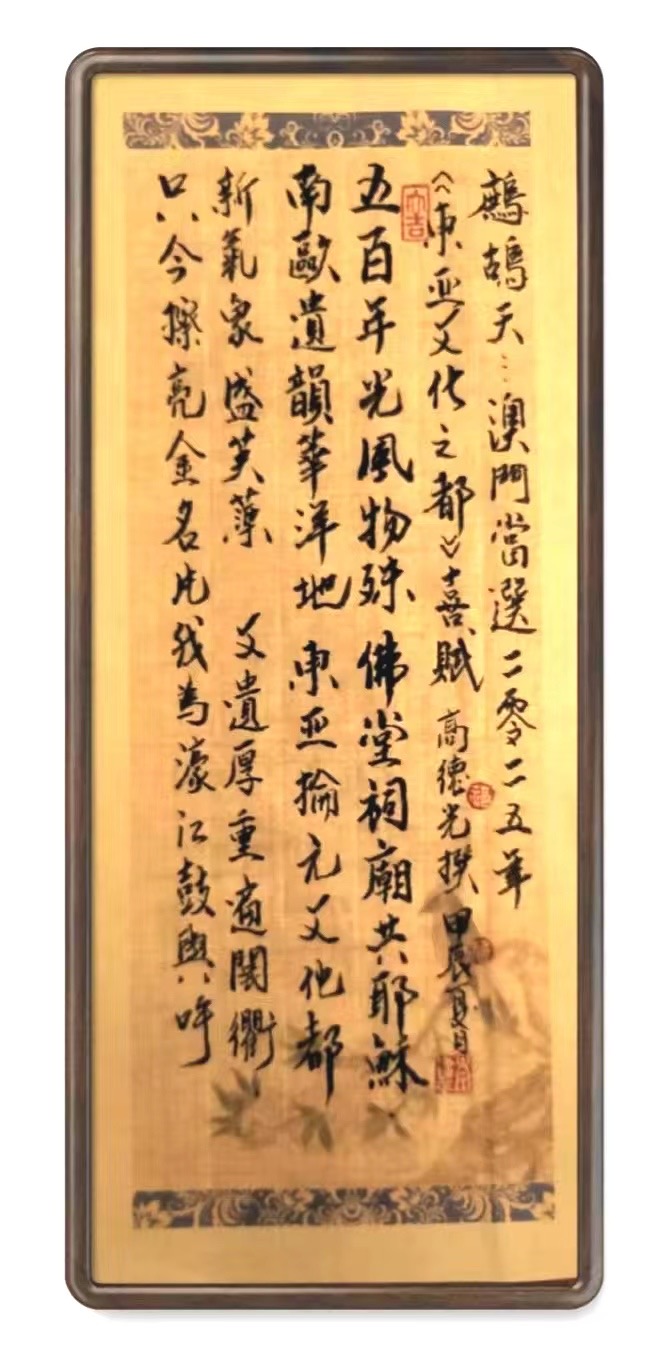 鷓鴣天：澳門當選二零二五年
《東亞文化之都》喜賦 高德光撰 甲辰夏日
大吉
五百年光風物殊 佛堂祠廟共耶穌
南歐遺韻華洋地 東亞掄元文化都
新氣象 盛芙蕖 文遺厚重遍閭衢
只今擦亮金名片 我為濠江鼓與呼